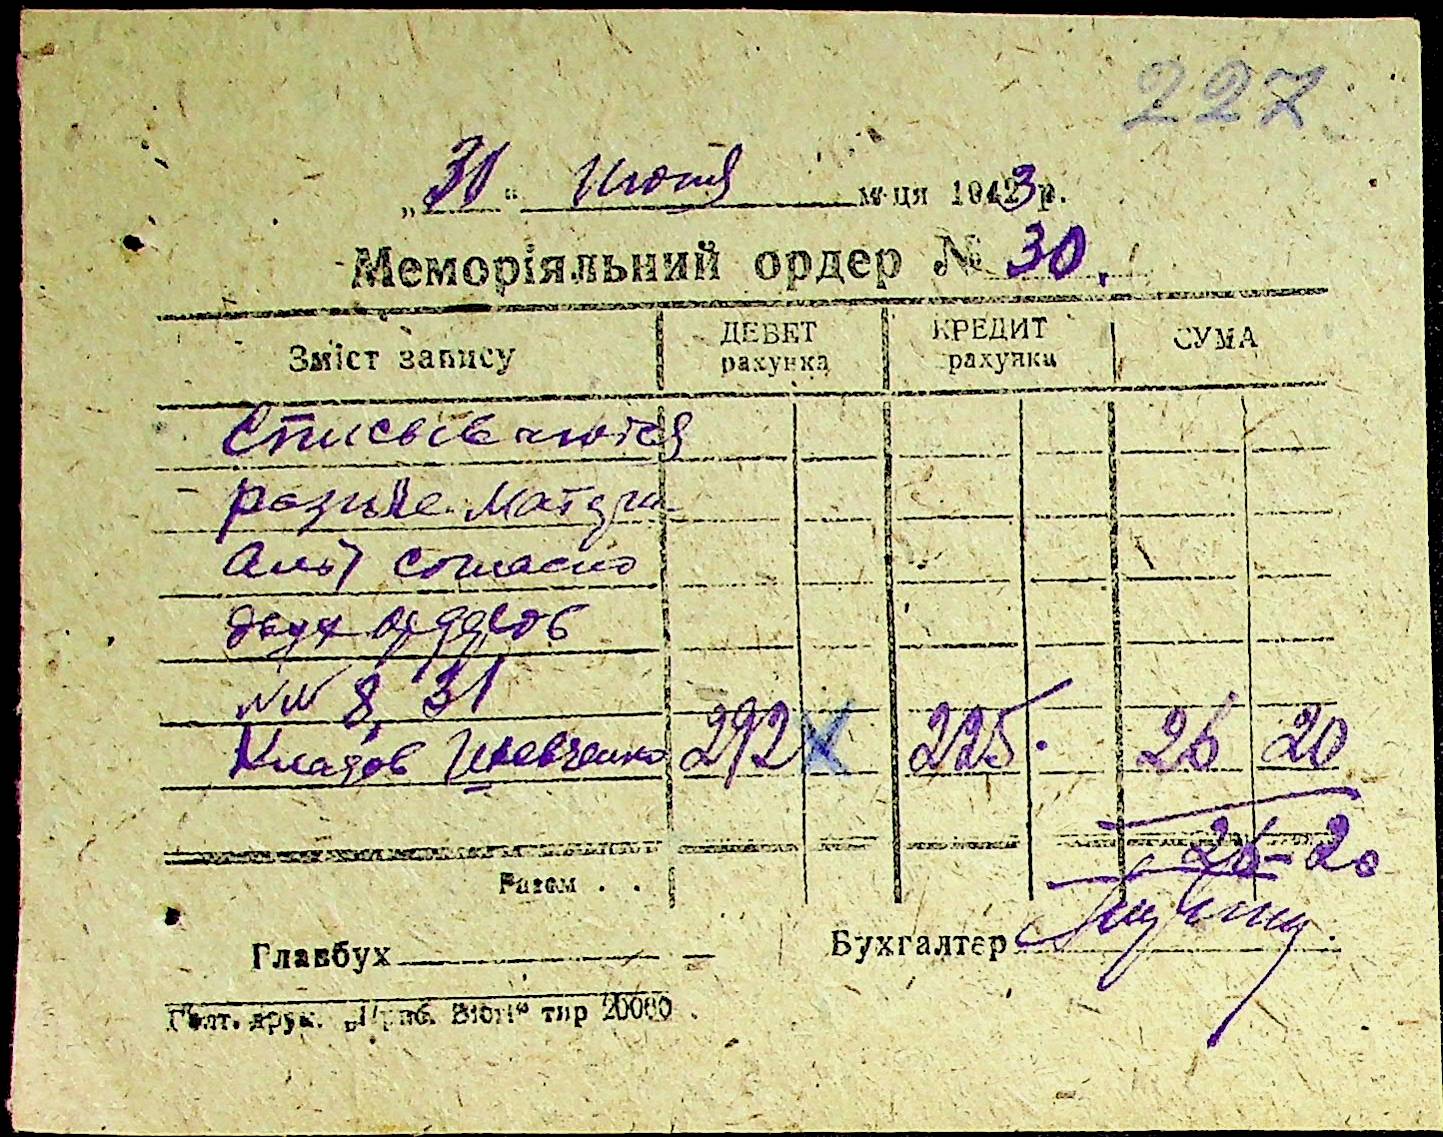 227
„31“ Июля м-ця 1943 р.
Меморіяльний ордер № 30.
Зміст запису ДЕБЕТ рахунка КРЕДИТ рахунка СУМА
Списываются
разные матери-
алы согласно
двух ордеров
№№ 8, 31
Кладов Шевченко 292 225. 26 20
26-20
Разом . .
Главбух Бухгалтер
друк. тир 20000